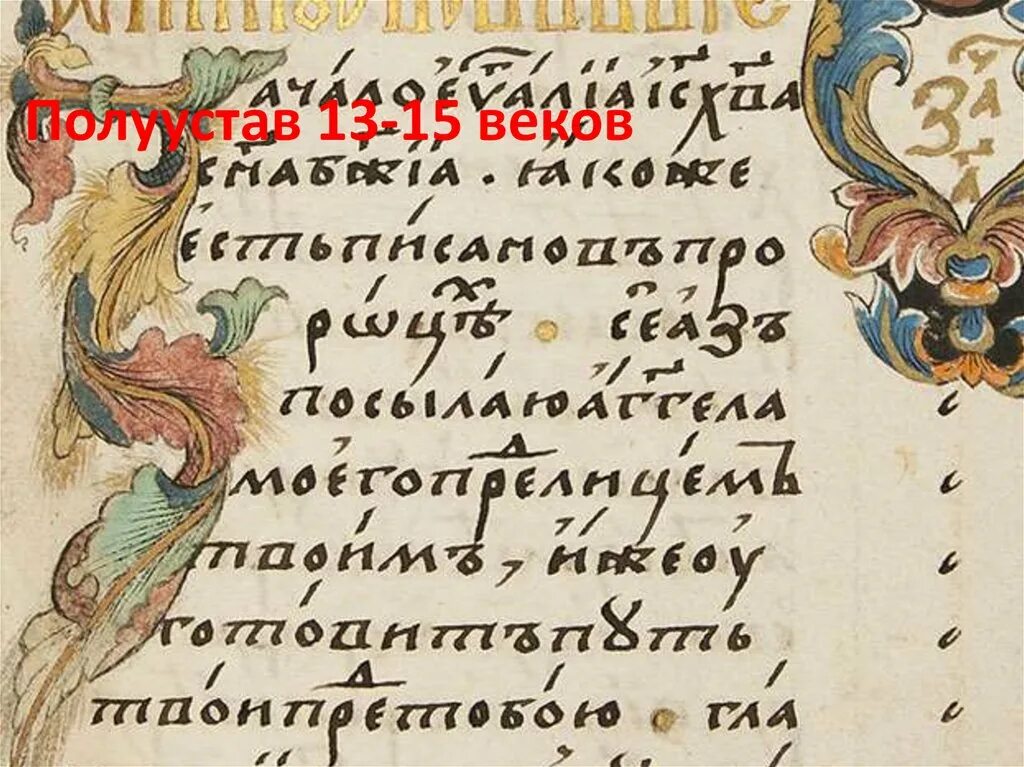 Полуустав 13-15 веков
ача́ло є҆ѵⷢ҇а́лїа і҆с҃ х҃ва
сн҃а бж҃їѧ . ꙗ҆коже
є҆сть писано въ про
ро́цѣⷯ . се а҆́зъ
посыла́ю а҆́гг҃ела
моего̀ преⷣ лице́мъ
твои́мъ , и҆́же оу
гото́витъ пꙋ́ть
тво́й преⷣ тобо́ю . гла́
за҃